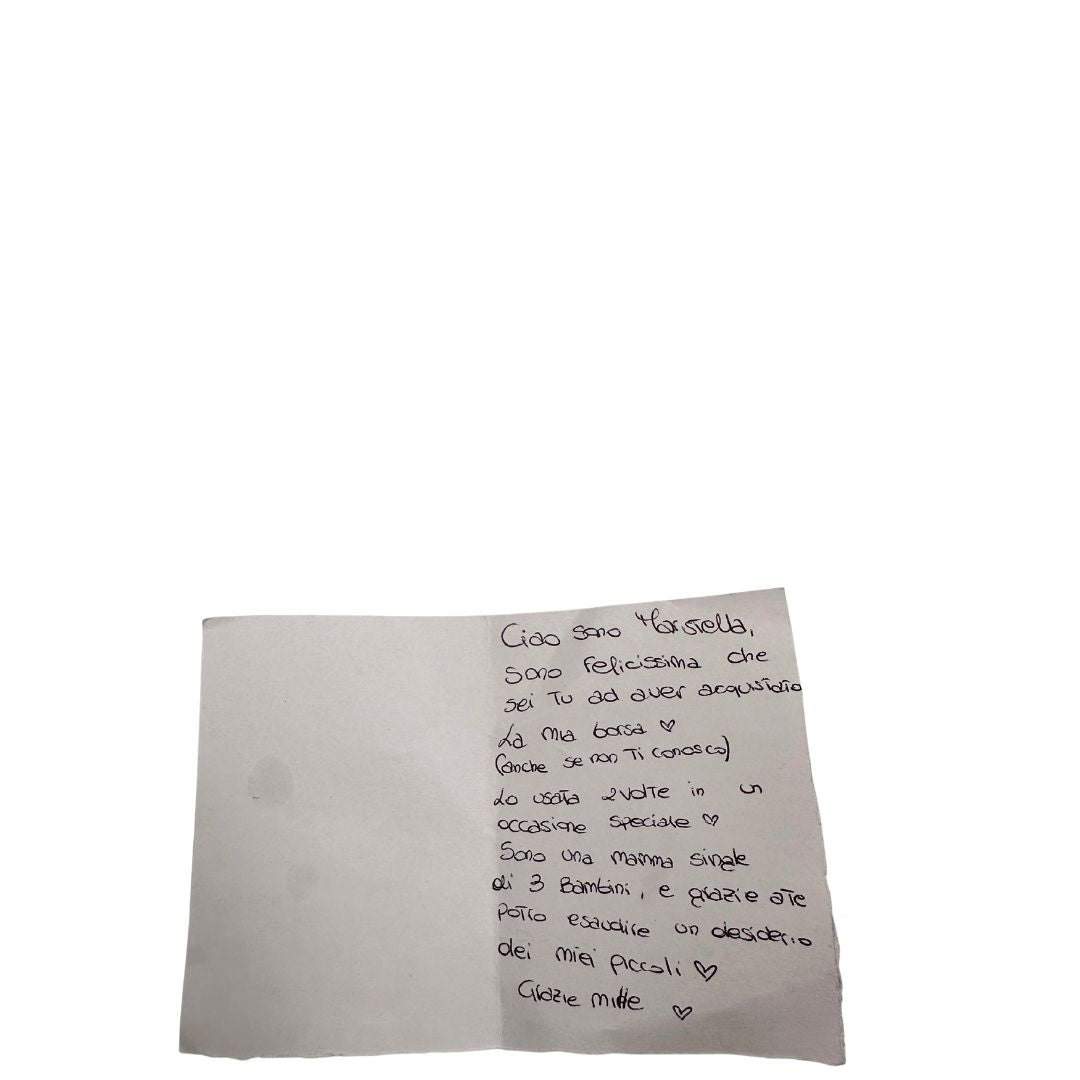 Ciao sono Maristella,
sono felicissima che
sei Tu ad aver acquistato
La mia borsa ♡
(anche se non Ti conosco)
Lo usata 2 volte in un
occasione speciale ♡
Sono una mamma single
di 3 Bambini, e grazie a te
potro esaudire un desiderio
dei miei piccoli ♡
Grazie mille ♡